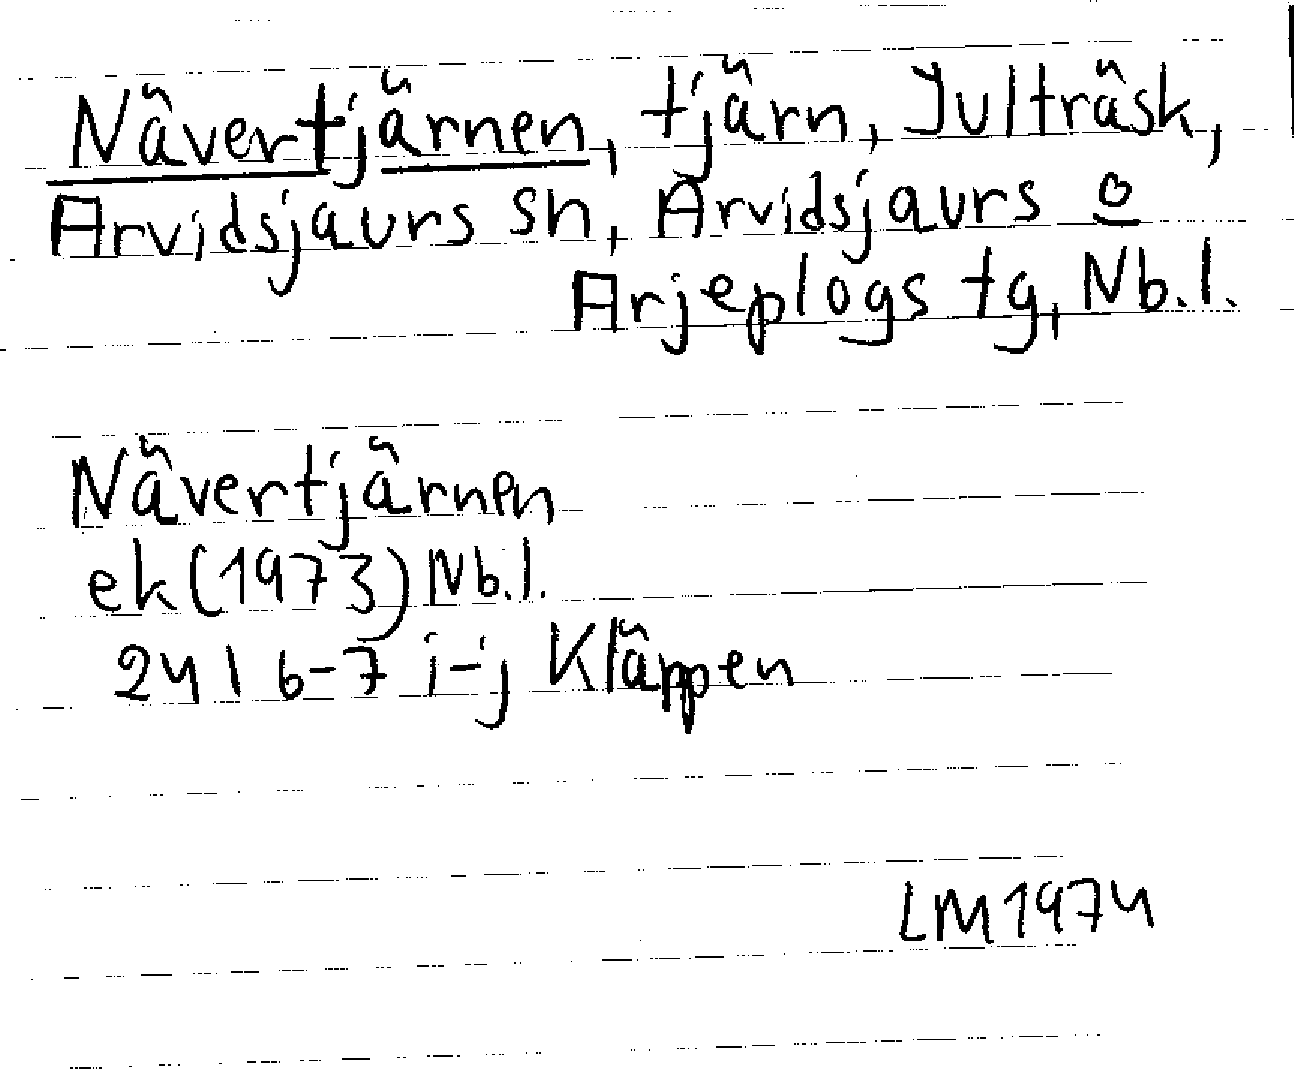 Nävertjärnen, tjärn, Julträsk,
Arvidsjaurs sn, Arvidsjaurs o
Arjeplogs tg, Nb.l.
Nävertjärnen
ek (1973) Nb.l.
24 I 6-7 i-j Kläppen
LM 1974